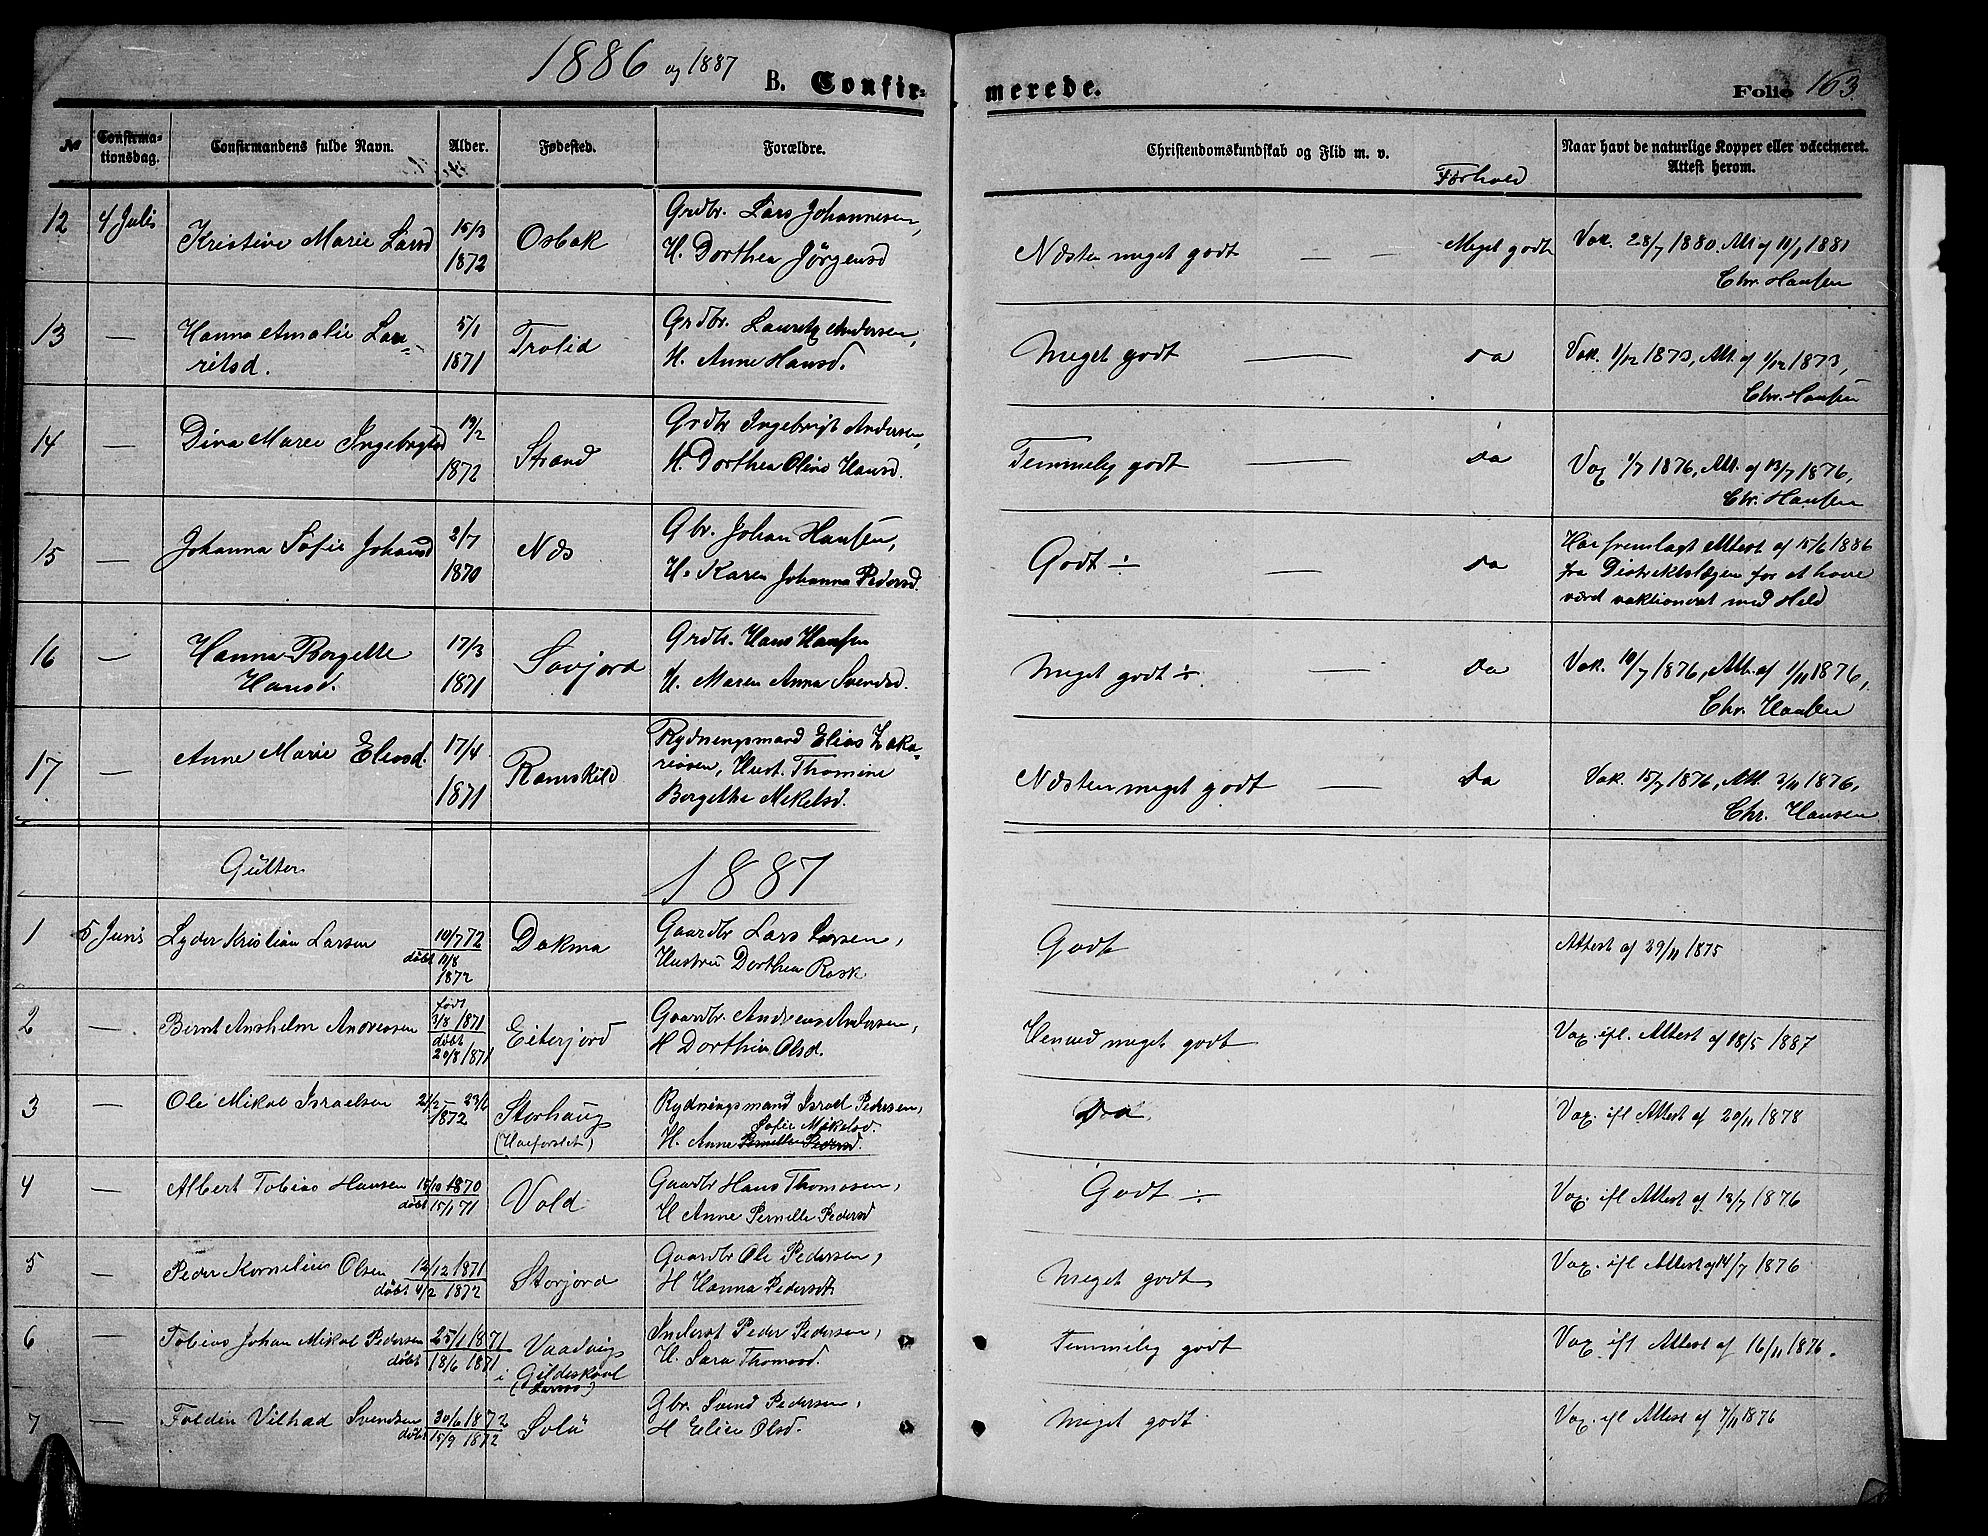 1886 og 1887
B. Confirmerede.
Folio 163.
No
Confirmationsdag.
Confirmandens fulde Navn.
Alder.
Fødested.
Forældre.
Christendomskundskab og Flid m. v.
Forhold
Naar havt de naturlige Kopper eller vaccineret. Attest herom.
12 4 Juli Kristine Marie Larsd 15/3 1872 Osbak Grdbr. Lars Johannesen, H. Dorthea Jörgensd Næsten meget godt — — Meget godt Vak. 28/7 1880. Att. af 11/1 1881 Chr. Hansen
13 — Hanna Amalie Lauritsd. 5/1 1871 Trolid Grdbr. Lauritz Andersen, H. Anne Hansd. Meget godt — do Vak. 1/12 1873, Att. af 1/12 1873, Chr. Hansen
14 — Dina Marie Ingebrigtsd 19/2 1872 Strand Grdbr Ingebrigt Andersen, H. Dorthea Oline Hansd. Temmelig godt — do Vax 1/7 1876, Att. af 13/7 1876, Chr. Hansen
15 — Johanna Sofie Johansd 2/7 1870 Næs Gbr. Johan Hansen, H. Karen Johanna Pedersd. Godt ÷ — do Har fremlagt Attest af 15/6 1886 fra Distriktslægen for at have været vaktioneret med Held
16 — Hanna Bergette Hansd. 17/3 1871 Savjord Grdbr. Hans Hansen H. Maren Anna Svendsd. Meget godt ÷ — do Vak. 10/7 1876, Att. af 1/11 1876, Chr. Hansen
17 — Anne Marie Eliasd. 17/4 1871 Ramskild Rydningsmand Elias Zakariasen, Hust. Thomine Bergethe Mikelsd. Næsten meget godt — do Vak. 15/7 1876, Att. 3/11 1876, Chr. Hansen
Gutter 1887
1 5 Juni Lyder Kristian Larsen 10/7 72 döbt 11/8 1872 Dokma Gaardbr Lars Larsen, Hustru Dorthea Rask Godt Attest af 29/11 1875
2 — Bernt Anshelm Andreassen født 3/8 1871 döbt 20/8 1871 Eiterjord Gaardbr. Andreas Andersen, H Dorthea Olsd. Henved meget godt Vax. ifl. Attest af 18/5 1887
3 — Ole Mikal Israelsen 21/2 23/6 1872 Storhaug (Harforslet) Rydningsmand Israel Pedersen, H. Anne Sofie Mikelsd. Pernille Pedersd. Do Vax. ifl Attest af 20/11 1878
4 — Albert Tobias Hansen 15/10 1870 döbt 15/1 71 Vold Gaardbr Hans Thomasen, H Anne Pernille Pedersd Godt ÷ Vax. ifl Attest af 13/7 1876
5 — Peder Kornelius Olsen 12/12 1871 döbt 4/2 1872 Storjord Gaardbr Ole Pedersen, H Hanna Pedersdt Meget godt Vax. ifl Attest af 14/7 1876
6 — Tobias Johan Mikal Pedersen 25/1 1871 döbt 18/6 1871 Vaadvig i Gildeskaal Inderst Peder Pedersen, H. Sara Thomasd. Temmelig godt Vax. ifl Attest af 16/11 1876.
7 — Foldin Vilhad Svendsen 30/6 1872 döbt 15/9 1872 Solü Gbr. Svend Pedersen, H Elien Olsd. Meget godt Vax. ifl Attest af 7/11 1876